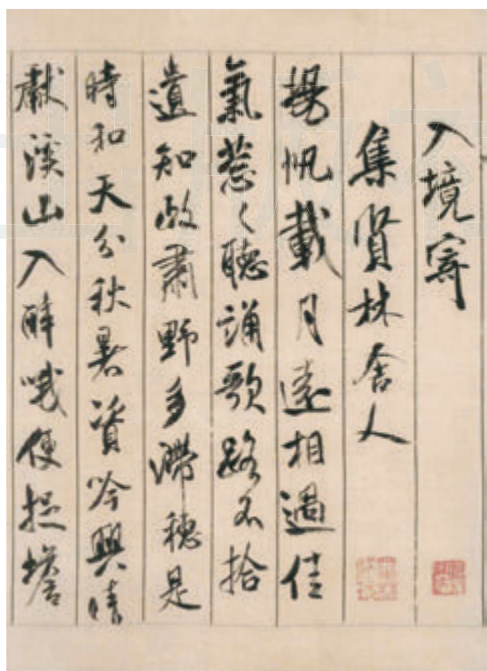 入境寄
集賢林舍人
揚帆載月遠相過佳
氣葱々聽誦歌路不拾
遺知政肅野多滯穗是
時和天分秋暑資吟興晴
獻溪山入醉哦便捉蟾